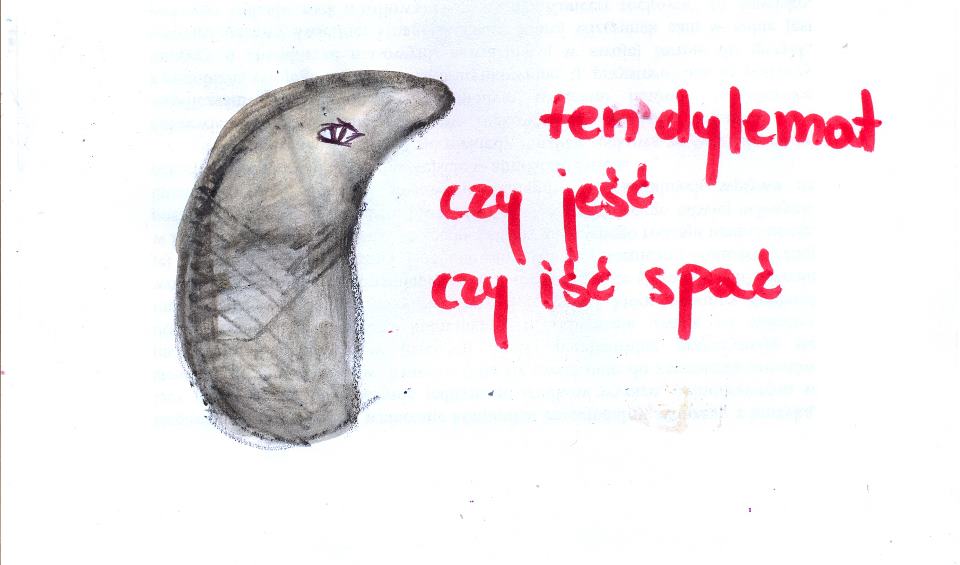 ten dylemat
czy jeść
czy iść spać